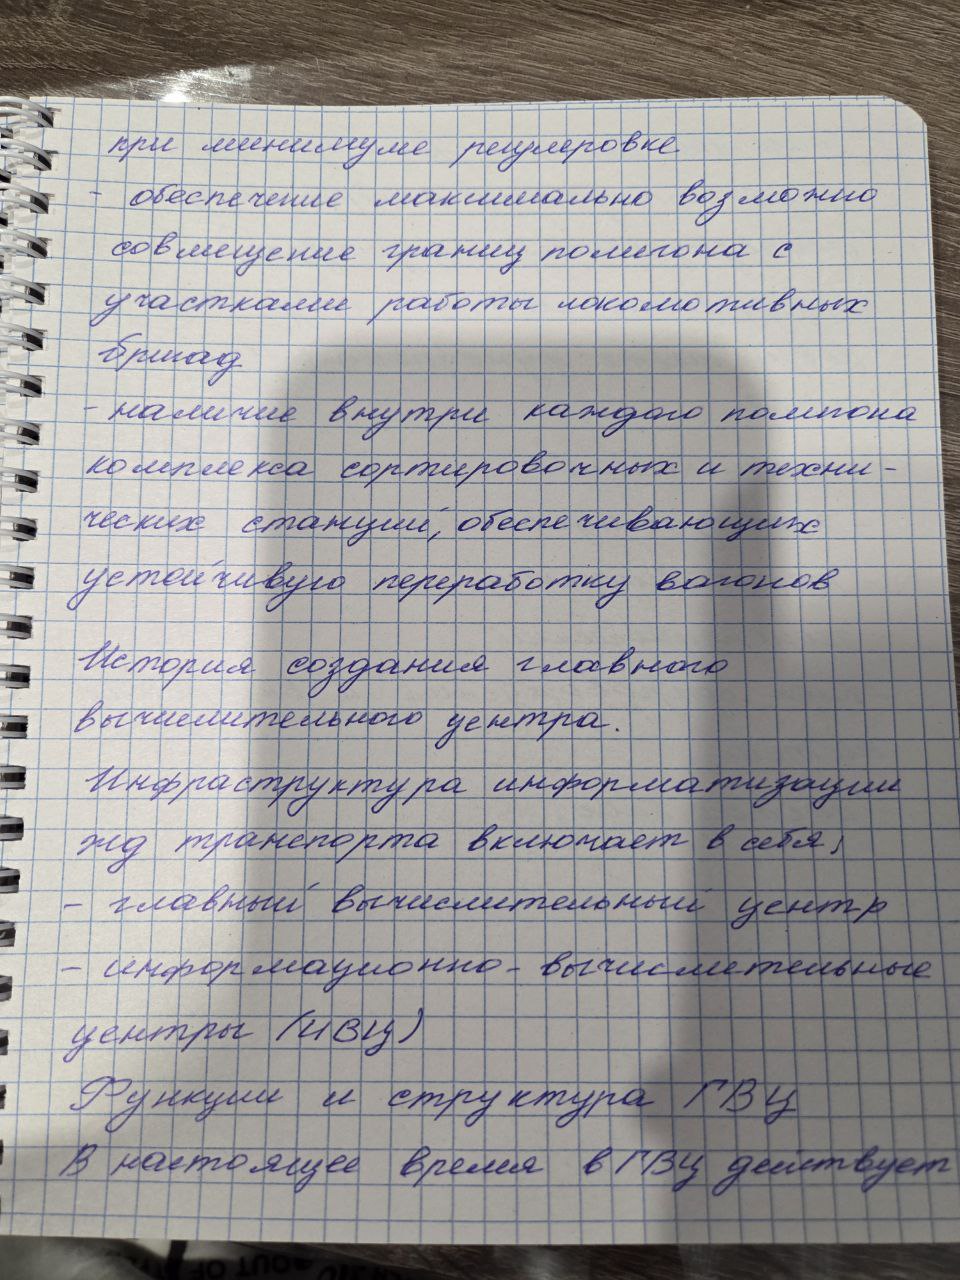 при минимуме регулеровке
- обеспечение максимально возможно
совмещение границ полигона с
участками работы локомотивных
бригад
- наличие внутри каждого полигона
комплекса сортировочных и техни-
ческих станций, обеспечивающих
устойчивую переработку вагонов
История создания главного
вычислительного центра.
Инфраструктура информатизации
жд транспорта включает в себя,
- главный вычислительный центр
- информационно-вычислительные
центры (ИВЦ)
Функции и структура ГВЦ
В настоящее время в ГВЦ действует
OUT OF